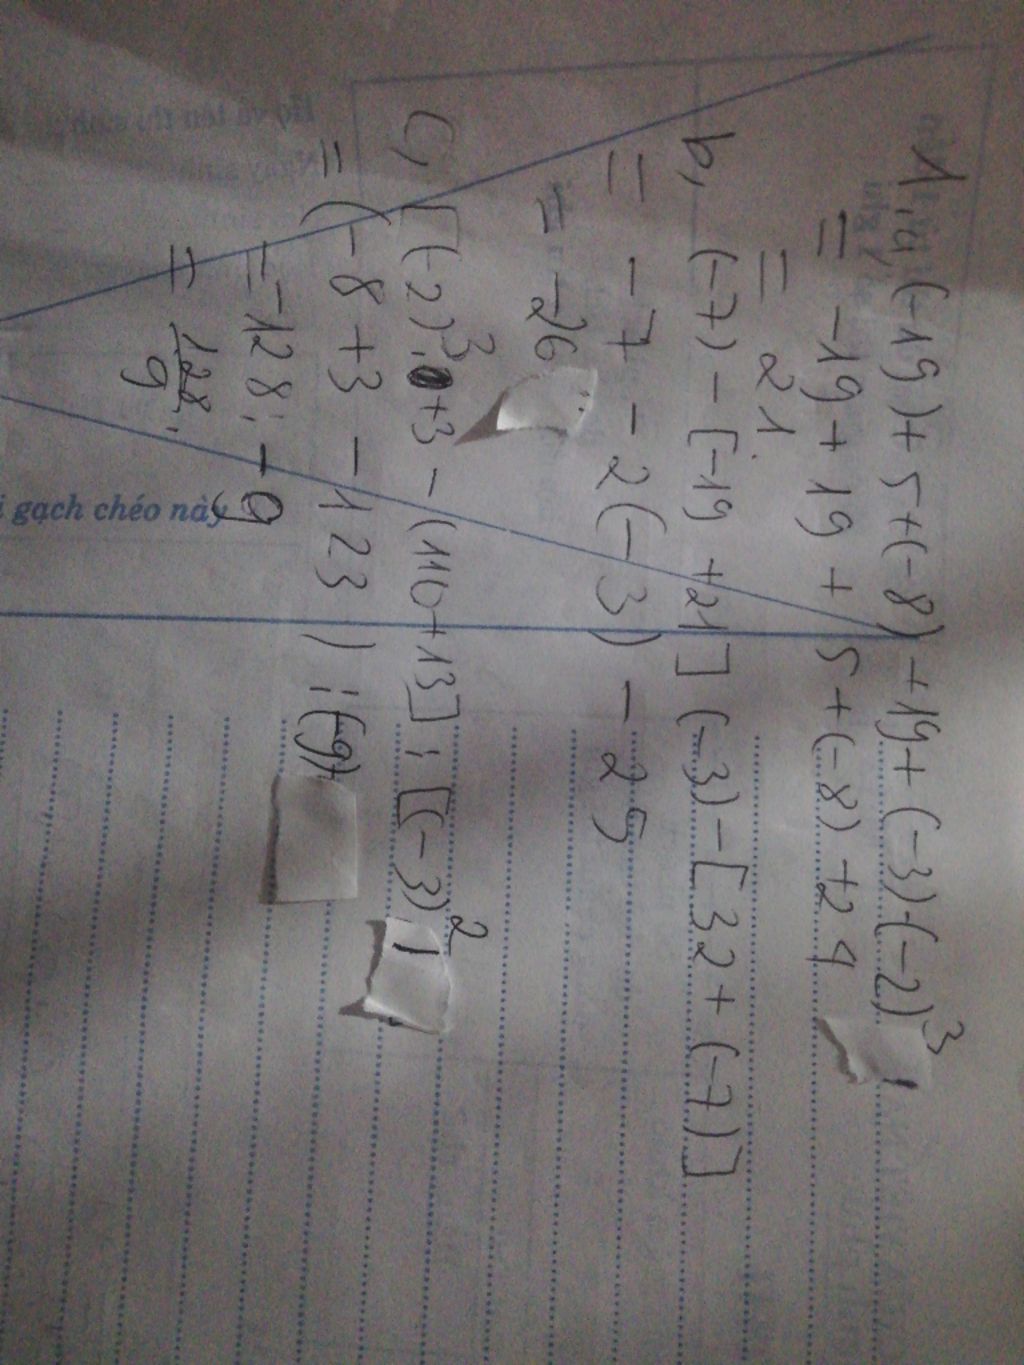 1, a, (-19) + 5 + (-8) + 19 + (-3) · (-2)³
= -19 + 19 + 5 + (-8) + 24
= 21
b, (-7) - [-19 + 21] (-3) - [32 + (-7)]
= -7 - 2(-3) - 25
= -26
c, [(-2)³ + 3 - (110 + 13] : [(-3)²]
= (-8 + 3 - 123) : (-9)
= -128 : -9
= 128/9
i gạch chéo này
Họ và tên thí sinh:
Ngày sinh: